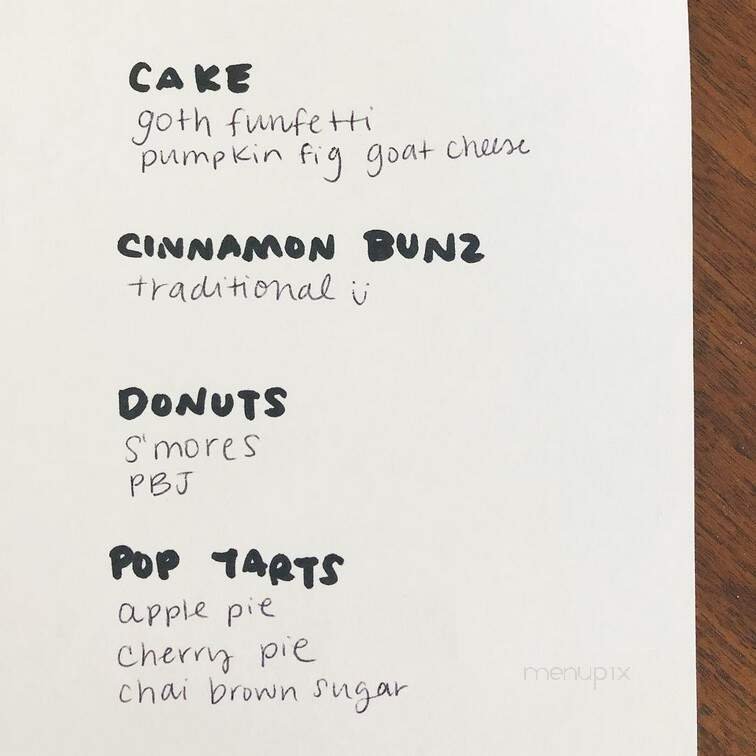 CAKE
goth funfetti
pumpkin fig goat cheese
CINNAMON BUNZ
traditional ü
DONUTS
s'mores
PBJ
POP TARTS
apple pie
cherry pie
chai brown sugar
menupix